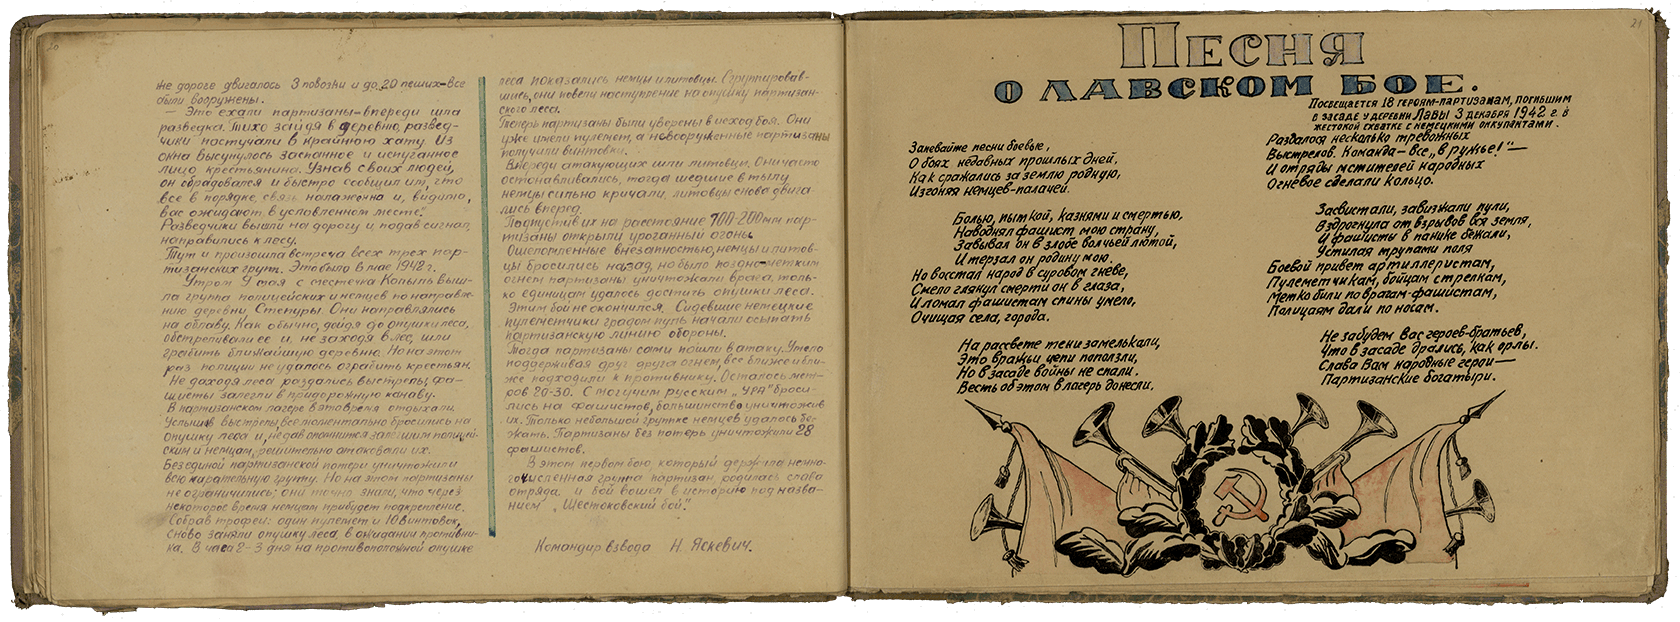 20
же дороге двигалось 3 повозки и до 20 пеших-все
были вооружены.
— Это ехали партизаны-впереди шла
разведка. Тихо зайдя в деревню, развед-
чики постучали в крайнюю хату. Из
окна высунулось заспанное и испуганное
лицо крестьянина. Узнав своих людей,
он обрадовался и быстро сообщил им, что
все в порядке, связь налажена и, видимо,
вас ожидают в условленном месте.
Разведчики вышли на дорогу и, подав сигнал,
направились к лесу.
Тут и произошла встреча всех трех пар-
тизанских групп. Это было в мае 1942 г.
Утром 9 мая с местечка Копыль выш-
ла группа полицейских и немцев по направле-
нию деревни Степуры. Они направлялись
на облаву. Как обычно, дойдя до опушки леса,
обстреливали ее и, не заходя в лес, шли
грабить ближайшую деревню. Но на этот
раз полиции не удалось ограбить крестьян.
Не доходя леса раздались выстрелы, фа-
шисты залегли в придорожную канаву.
В партизанском лагере в это время отдыхали.
Услышав выстрелы, все моментально бросились на
опушку леса и, не дав опомнится залегшим полицей-
ским и немцам, решительно атаковали их.
Без единой партизанской потери уничтожили
всю карательную группу. Но на этом партизаны
не ограничились; они точно знали, что через
некоторое время немцам прибудет подкрепление.
Собрав трофеи: один пулемет и 10 винтовок,
снова заняли опушку леса, в ожидании противни-
ка. В часа 2-3 дня на противоположной опушке
леса показались немцы и литовцы. Сгруппировав-
шись, они повели наступление на опушку партизан-
ского леса.
Теперь партизаны были уверены в исход боя. Они
уже имели пулемет, а невооруженные партизаны
получили винтовки.
Впереди атакующих шли литовцы. Они часто
останавливались, тогда шедшие в тылу
немцы сильно кричали, литовцы снова двига-
лись вперед.
Подпустив их на расстояние 100-200 мт пар-
тизаны открыли ураганный огонь.
Ошеломленные внезапностью, немцы и литов-
цы бросились назад, но было поздно-метким
огнем партизаны уничтожали врага, толь-
ко единицам удалось достичь опушки леса.
Этим бой не окончился. Сидевшие немецкие
пулеметчики градом пуль начали осыпать
партизанскую линию обороны.
Тогда партизаны сами пошли в атаку. Умело
поддерживая друг друга огнем, все ближе и бли-
же подходили к противнику. Осталось мет-
ров 20-30. С могучим русским „УРА" броси-
лись на фашистов, большинство уничтожив
их. Только небольшой группке немцев удалось бе-
жать. Партизаны без потерь уничтожили 28
фашистов.
В этом первом бою, который держала немно-
гочисленная группа партизан родилась слава
отряда и бой вошел в историю под назва-
нием „Шестаковский бой".
Командир взвода Н. Яскевич.
21
ПЕСНЯ
О ЛАВСКОМ БОЕ.
Посвещается 18 героям-партизанам, погибшим
в засаде у деревни Лавы 3 декабря 1942 г. в
жестокой схватке с немецкими оккупантами.
Запевайте песни боевые,
О боях недавных прошлых дней,
Как сражались за землю родную,
Изгоняя немцев-палачей.
Болью, пыткой, казнями и смертью,
Наводнял фашист мою страну,
Завывал он в злобе волчьей лютой,
И терзал он родину мою.
Но восстал народ в суровом гневе,
Смело глянул смерти он в глаза,
И ломал фашистам спины умело,
Очищая села, города.
На рассвете тени замелькали,
Это вражьи цепи поползли,
Но в засаде войны не спали.
Весть об этом в лагерь донесли.
Раздалося несколько тревожных
Выстрелов. Команда-все „в ружье!"—
И отряды мстителей народных
Огневое сделали кольцо.
Засвистали, завизжали пули,
Вздрогнула от взрывов вся земля,
И фашисты в панике бежали,
Устилая трупами поля
Боевой привет артиллеристам,
Пулеметчикам, бойцам стрелкам,
Метко били по врагам-фашистам,
Полицаям дали по носам.
Не забудем Вас героев-братьев,
Что в засаде дрались, как орлы.
Слава Вам народные герои—
Партизанские богатыри.